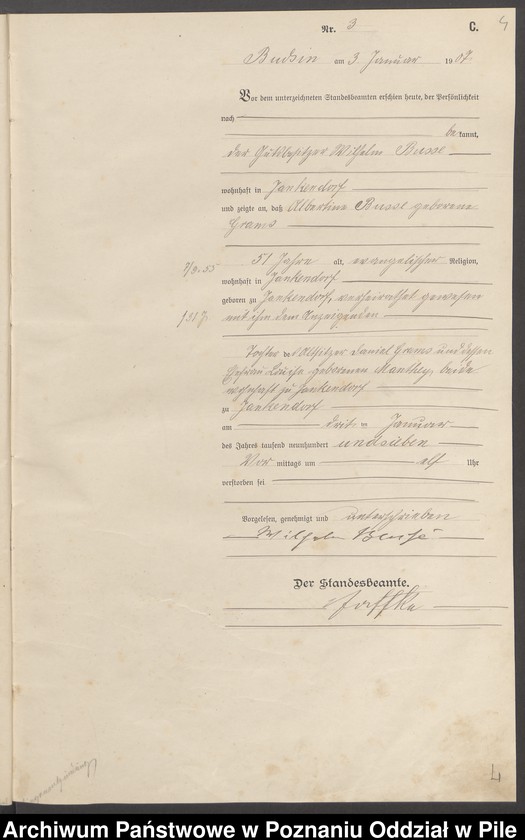 Nr. 3 C. 4
Budsin am 3. Januar 1907.
Vor dem unterzeichneten Standesbeamten erschien heute, der Persönlichkeit
nach
bekannt,
der Gutsbesitzer Wilhelm Busse
wohnhaft in Jankendorf
und zeigte an, daß Albertine Busse geborene
Grams
51 Jahre alt, evangelischer Religion,
wohnhaft in Jankendorf
geboren zu Jankendorf, verheirathet gewesen
mit ihm dem Anzeigenden
Tochter des Altsitzer Daniel Grams und dessen
Ehefrau Luise geborenen Manthey, beide
wohnhaft zu Jankendorf
zu Jankendorf
am dritten Januar
des Jahres tausend neunhundert und sieben
Vor mittags um elf Uhr
verstorben sei
Vorgelesen, genehmigt und unterschrieben
Wilhelm Busse
Der Standesbeamte.
4
Archiwum Państwowe w Poznaniu Oddział w Pile